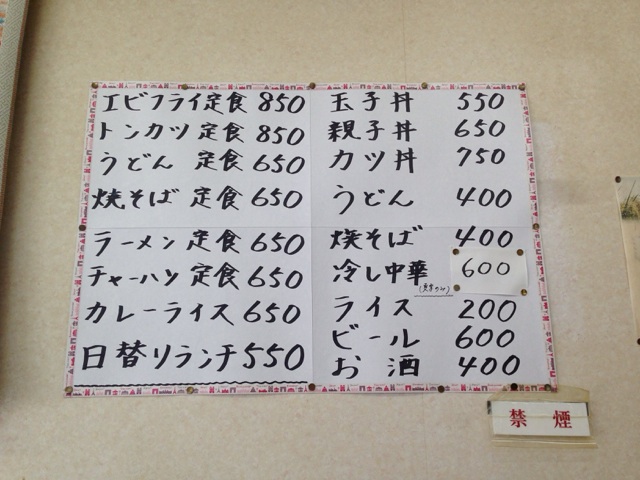 エビフライ定食 850
トンカツ 定食 850
うどん 定食 650
焼そば 定食 650
ラーメン 定食 650
チャーハン 定食 650
カレーライス 650
日替りランチ 550
玉子丼 550
親子丼 650
カツ丼 750
うどん 400
焼そば 400
冷し中華 600
ライス 200
ビール 600
お酒 400
禁煙